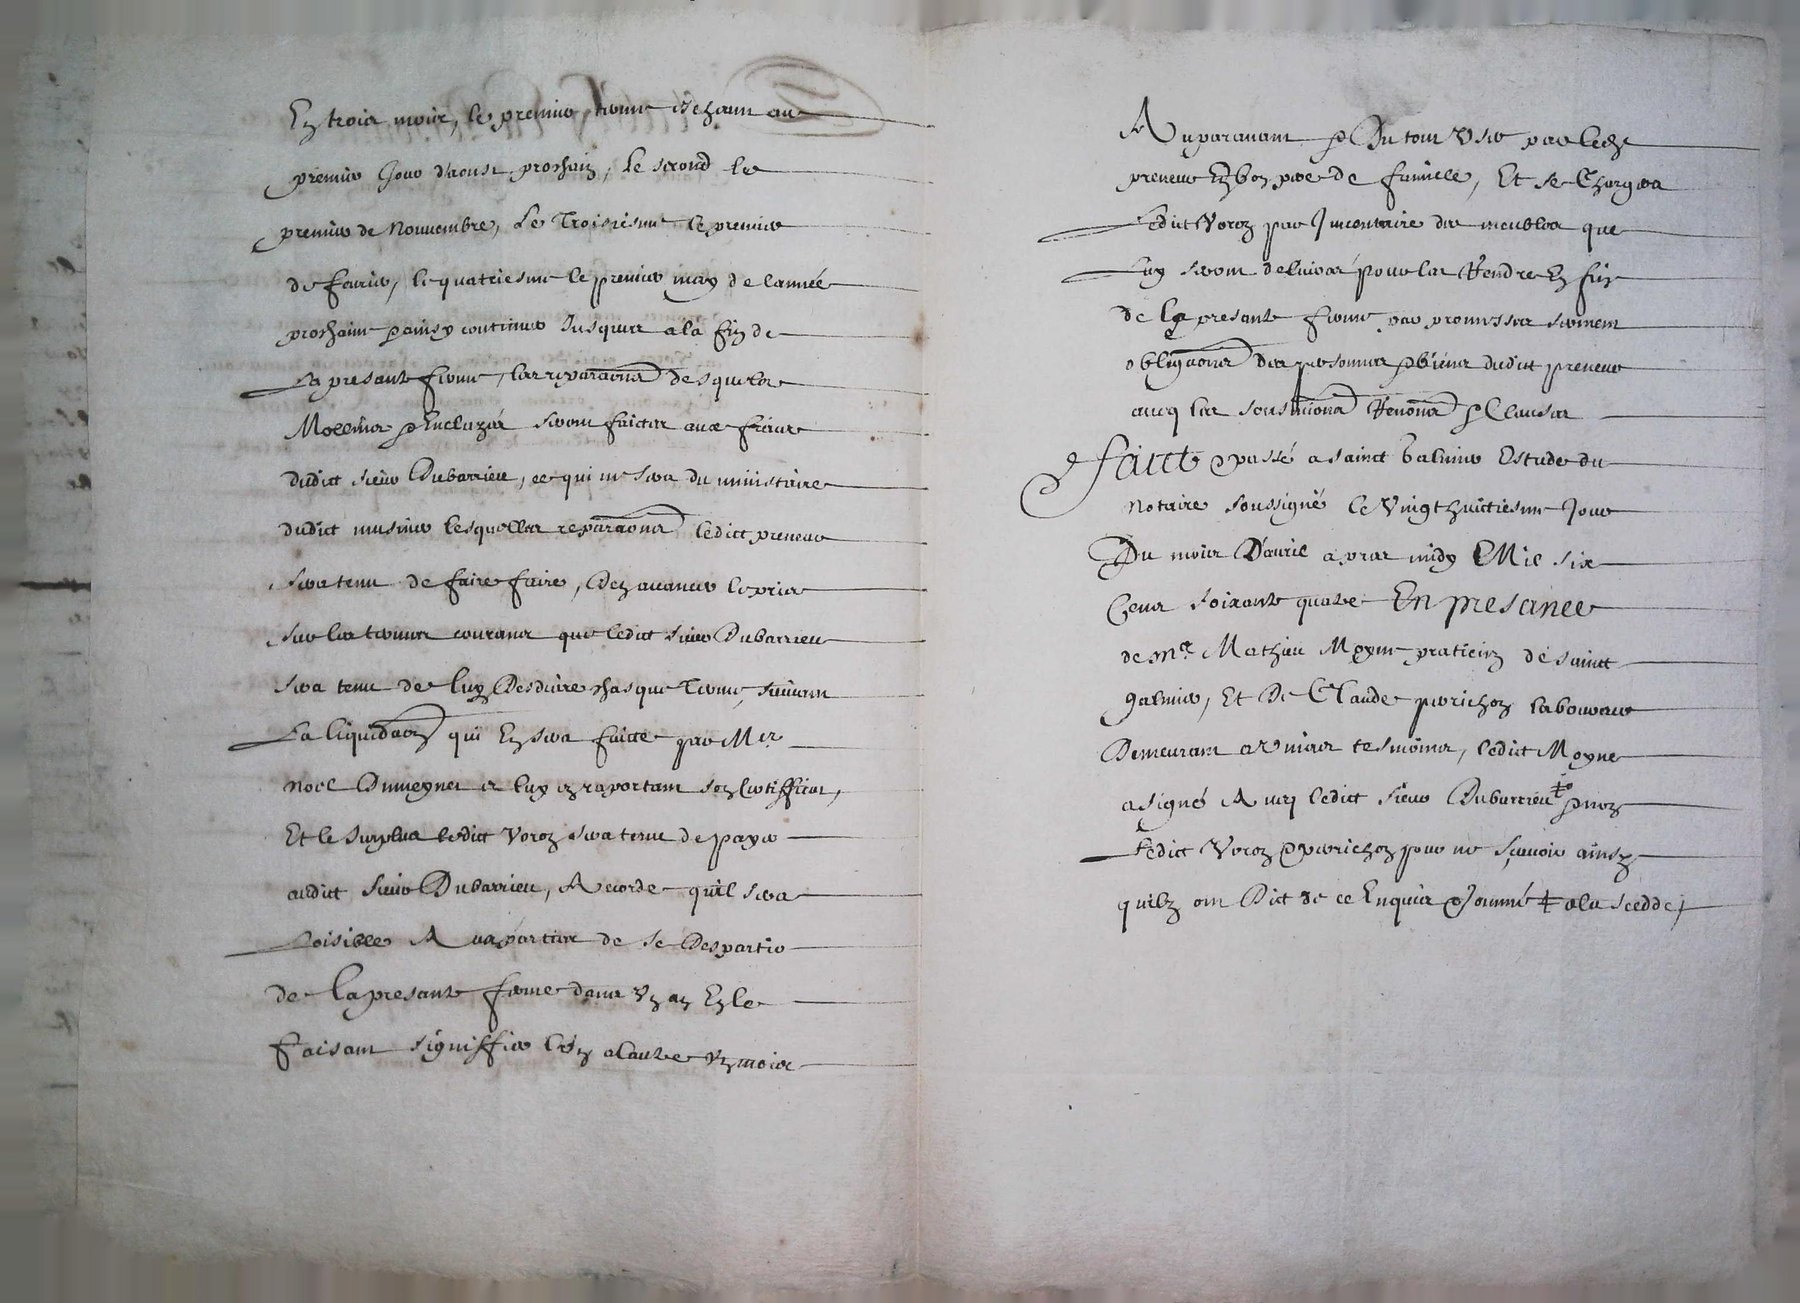 En trois mois, le premier terme escheant au
premier Jour d'aoust prochain, le second le
premier de Nouuembre, Le Troisiesme le premier
de feurier, le quatriesme le premier may de lannée
prochaine & ainsy continuer Jusques a la fin de
La presante ferme, les reparaons desquelz
Mollins & Encluzes seront faictes aux fraictz
dudict sieur Dubarrieu, ce qui ne sera du ministaire
dudict musnier lesquelles reparaons ledict preneur
sera tenu de faire faire, & en auancer le prix
sur les termes courans que ledict sieur Dubarrieu
sera tenu de luy Desduire chasque Terme, suiuant
La liquidaon qui En sera faicte par Mer
noel Dumeynet et luy en raportant son Certifficat,
Et le surplus ledict Voron sera tenu de payer
audict sieur Dubarrieu, Accorde quil sera
Loisible Aux parties de se Despartir
de La presante ferme dans Vn an En le
faisant signiffier lun a lautre Vn mois
Auparauant & Du tout Vser par ledict
preneur En bon pere de famille, Et se Chargera
Ledict Voron par Jnuentaire des meubles que
Luy seront deliurés pour les Rendre En fin
de la presante ferme par promesses serment
obligaons des personnes & biens dudict preneur
aueq les sousmions Renons & Clauses
faict & passé a sainct Galmier Estude du
notaire soussigné le Vingthuictiesme Jour
Du mois D'auril apres midy Mil six
Cens soixante quatre En presance
de Me Mathieu Moyne praticien de sainct
galmier, Et De Claude perichon laboureur
Demeurant a tesmoins, ledict Moyne
a signé Aueq ledict sieur Dubarrieu & non
Ledict Voron & perichon pour ne scauoir ainsy
quilz ont Dict de ce Enquis & sommé ‡ a la scedde